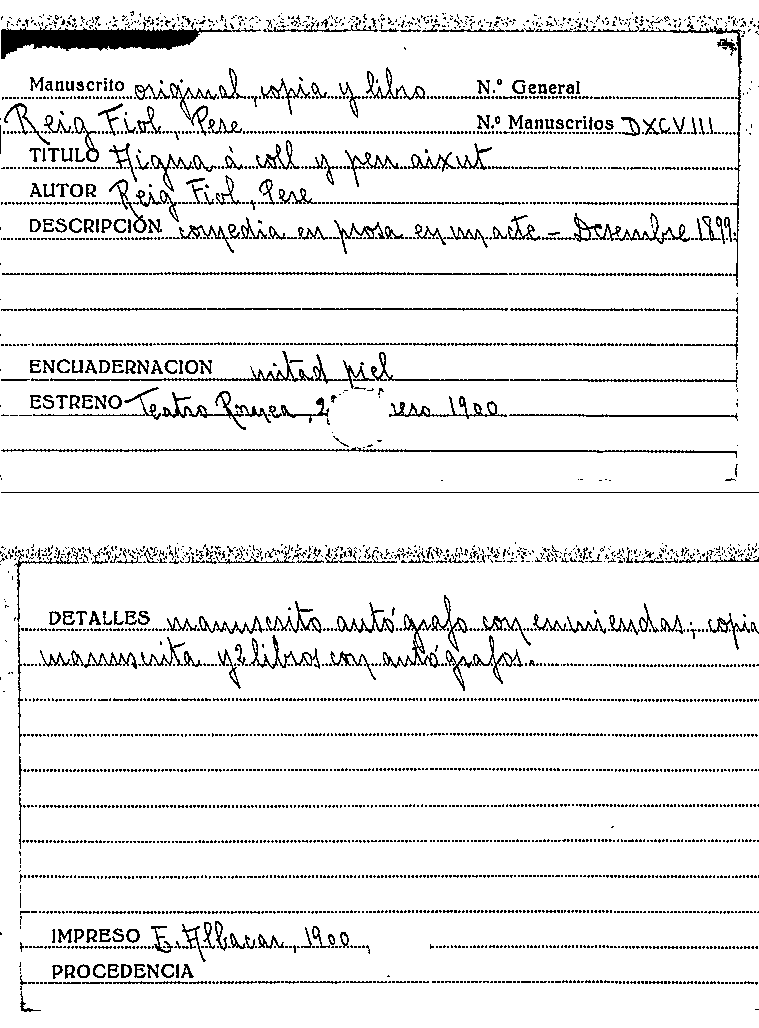 Manuscrito original, copia y libro N.º General
Reig Fiol, Pere N.º Manuscritos DXCVIII
TITULO Aigua á coll y peu aixut
AUTOR Reig Fiol, Pere
DESCRIPCIÓN comedia en prosa en un acte - Desembre 1899.
ENCUADERNACION mitad piel
ESTRENO Teatro Romea, 1900
DETALLES manuscrito autógrafo con enmiendas; copia
manuscrita y 2 libros con autógrafos.
IMPRESO E. Albacar, 1900,
PROCEDENCIA